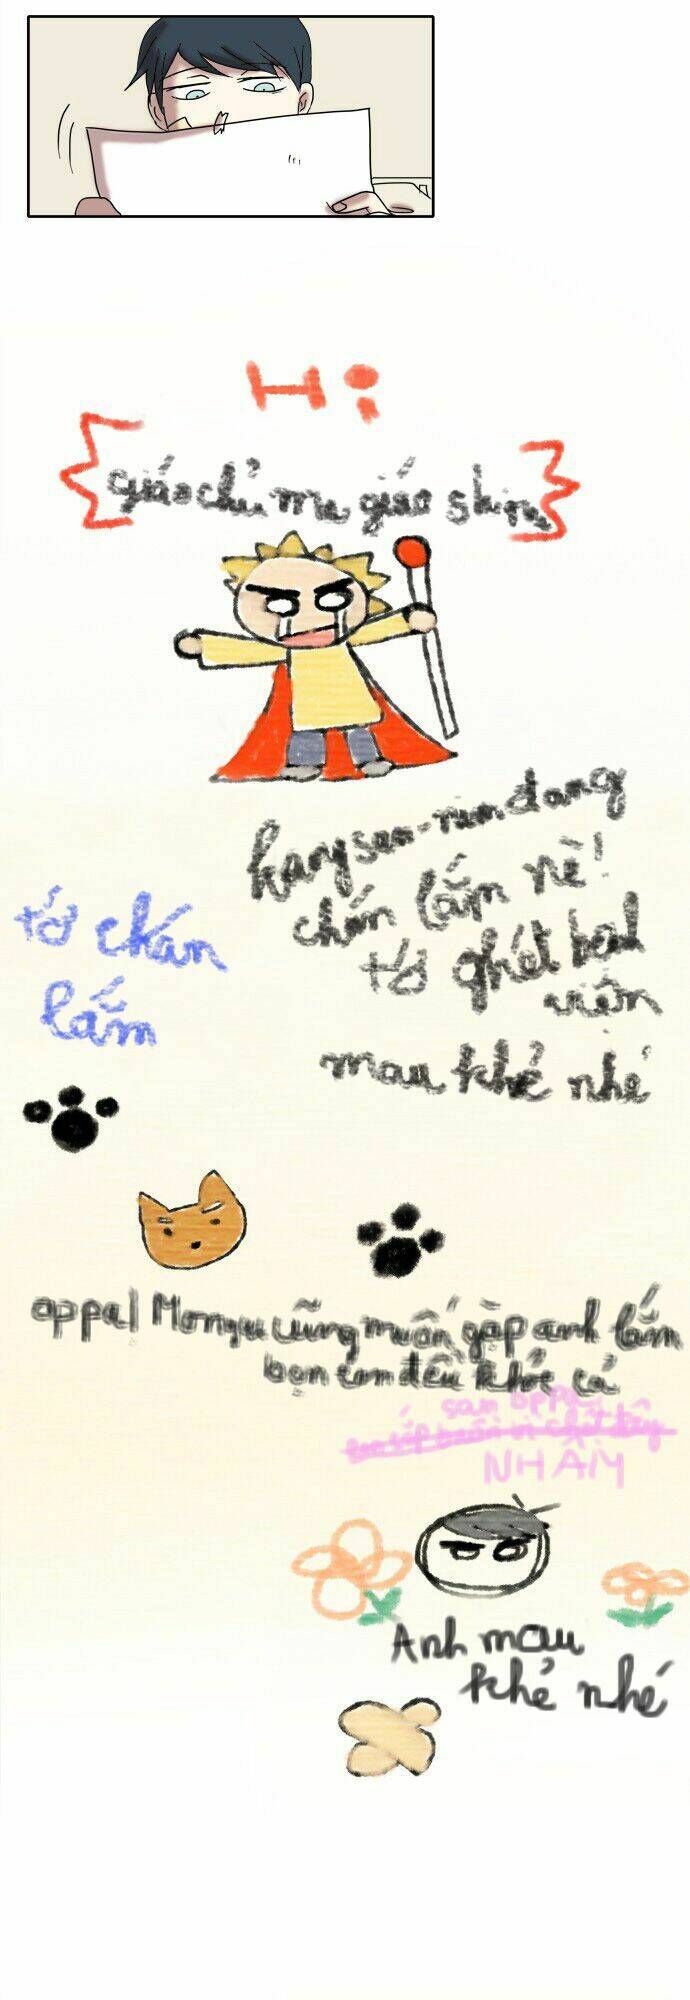 Hi
giáo chủ ma giáo shin
kang san-nim đang
chán lắm nè!
tớ ghét bệnh
viện
mau khỏe nhé
tớ chán
lắm
oppa! Mongu cũng muốn gặp anh lắm
bọn em đều khỏe cả
san oppa
NHẦM
Anh mau
khỏe nhé